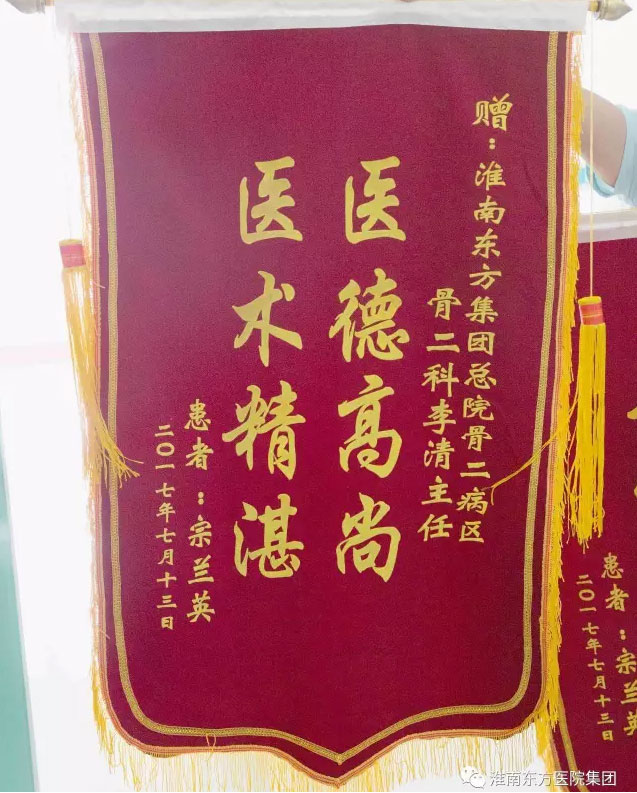 赠：淮南东方集团总院骨二病区
骨二科李清主任
医德高尚
医术精湛
患者：宗兰英
二〇一七年七月十三日
患者：宗兰英
二〇一七年七月十三日
淮南东方医院集团